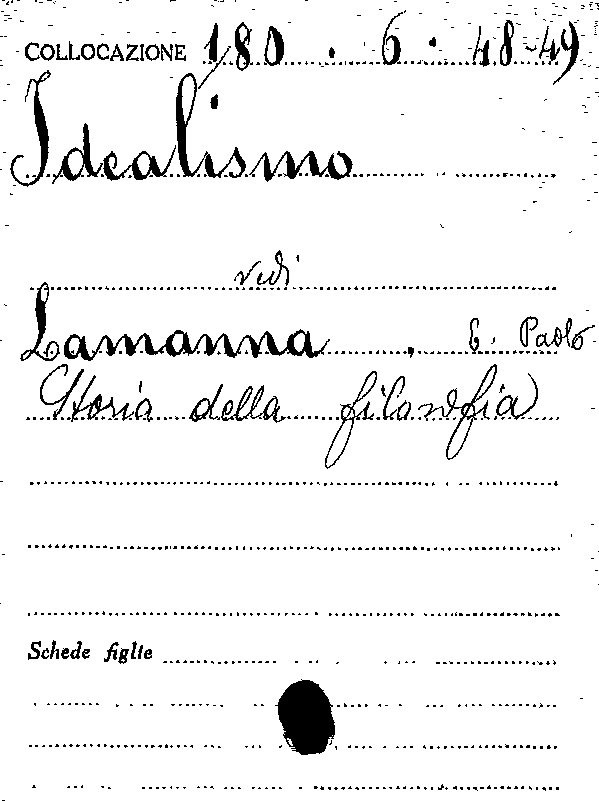 COLLOCAZIONE 180 . 6 . 48-49
Idealismo
vedi
Lamanna . E. Paolo
Storia della filosofia
Schede figlie